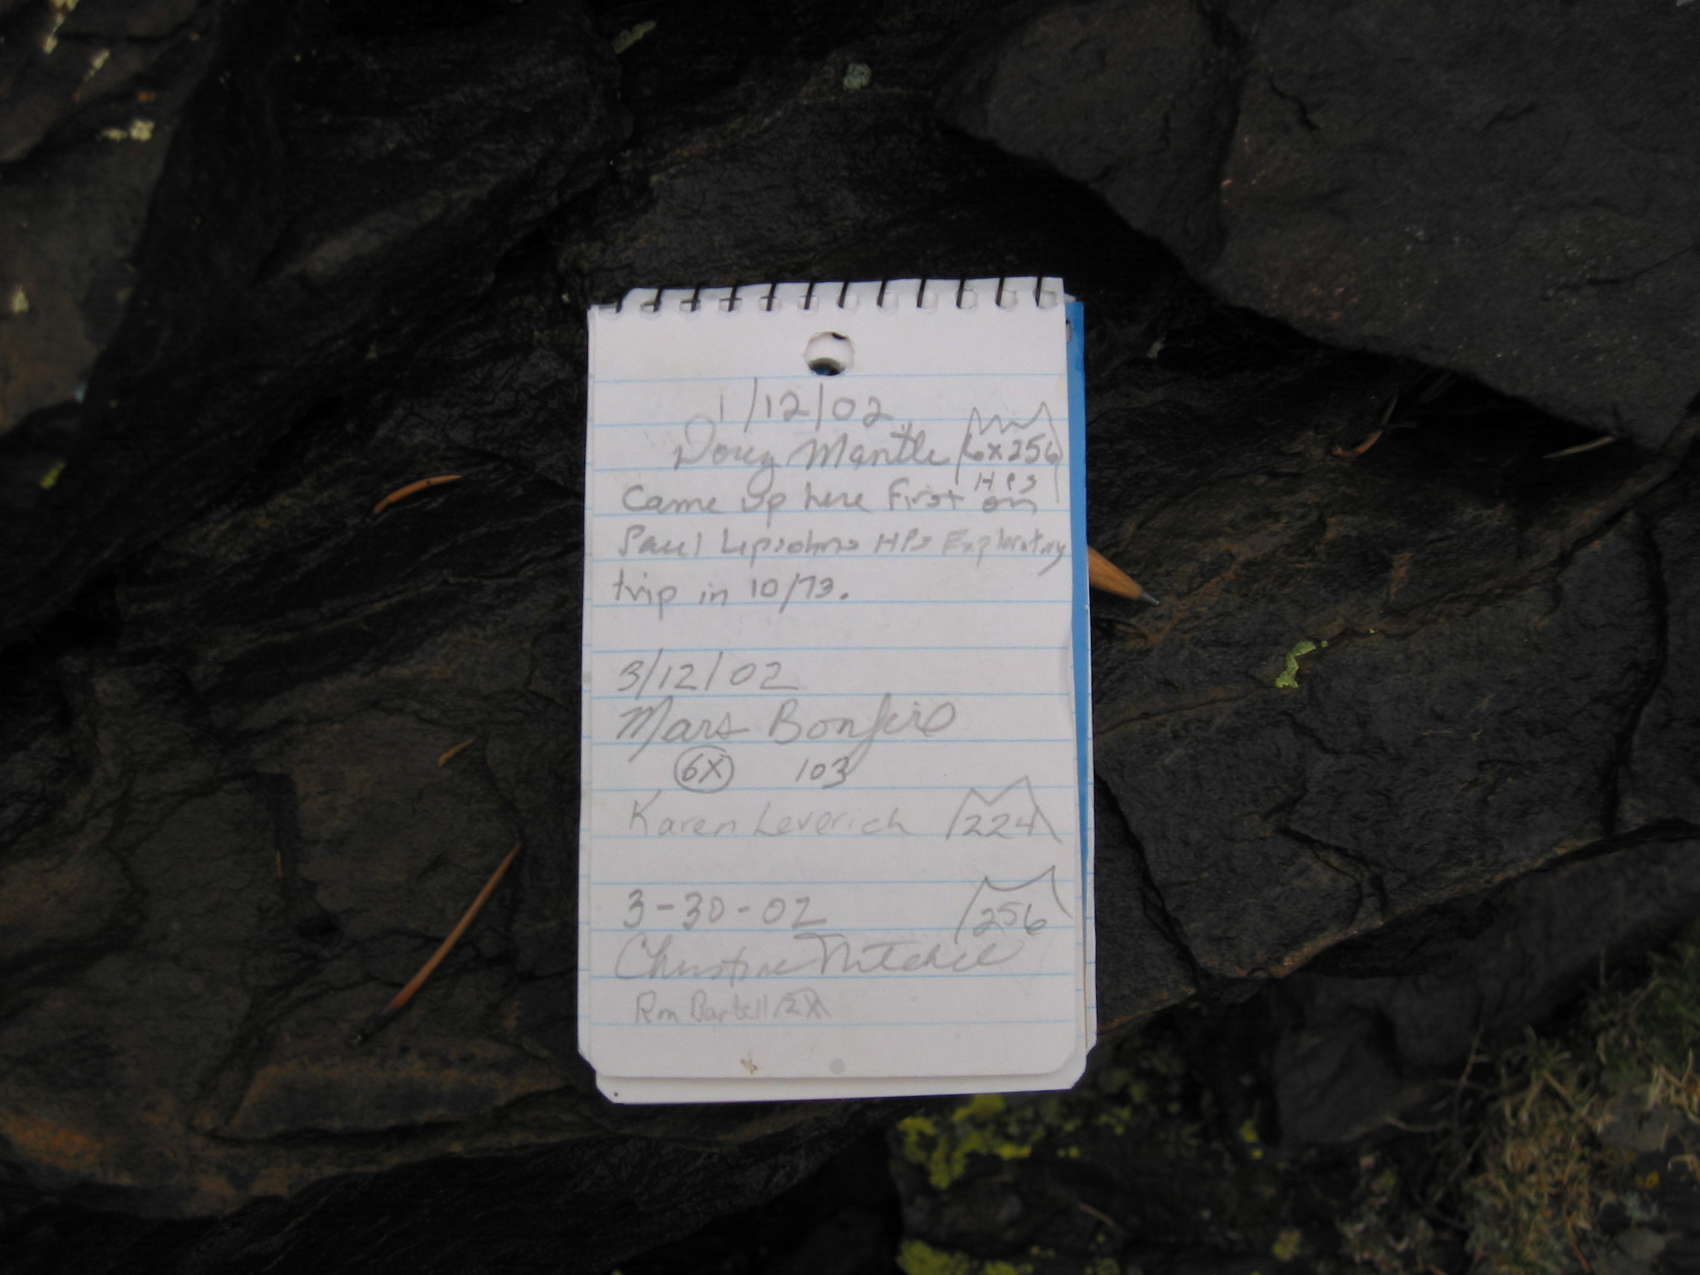 1/12/02
Doug Mantle 6x256
HPS
Came up here first on
Paul Lipsohns HPS Exploratory
trip in 10/73.
3/12/02
Mars Bonfire
6X 103
Karen Leverich 224
3-30-02 256
Christine Mitchell
Ron Bartell 2X